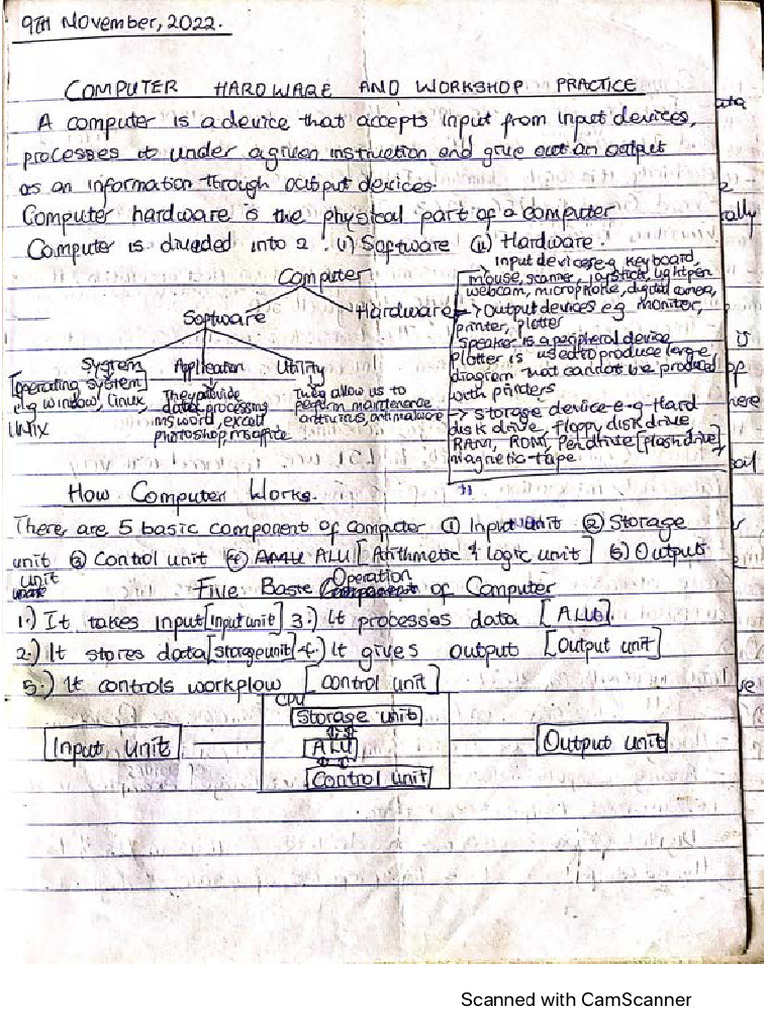 9th November, 2022.
COMPUTER HARDWARE AND WORKSHOP PRACTICE
A computer is a device that accepts input from input devices,
processes it under a given instruction and give out an output
as an information through output devices.
Computer hardware is the physical part of a computer
Computer is divided into 2. (i) Software (ii) Hardware.
Computer
Software
Hardware
System
[operating system]
e.g window, linux,
UNIX
Application
They provide
data processing
ms word, excell
photoshop, ms office
Utility
They allow us to
perform maintenance
antivirus, antimalware
→ Input devices e.g keyboard,
mouse, scanner, joystick, lightpen
webcam, microphone, digital camera,
→ Output devices e.g monitor,
printer, plotter
Speaker is a peripheral device
plotter is used to produce large
diagram that cannot be produced
with printers
→ Storage device e.g Hard
disk drive, floppy disk drive
RAM, ROM, Pendrive [flash drive]
magnetic-tape.
How Computer Works.
There are 5 basic component of computer ① Input unit ② Storage
unit ③ Control unit ④ ALU [Arithmetic & logic unit] ⑤ Output
unit
Five Basic Operation of Computer
1.) It takes input [input unit] 3.) It processes data [ALU].
2.) It stores data [storage unit] 4.) It gives output [Output unit]
5.) It controls workflow [control unit]
CPU
Storage unit
Input unit
ALU
Output unit
Control unit
Scanned with CamScanner